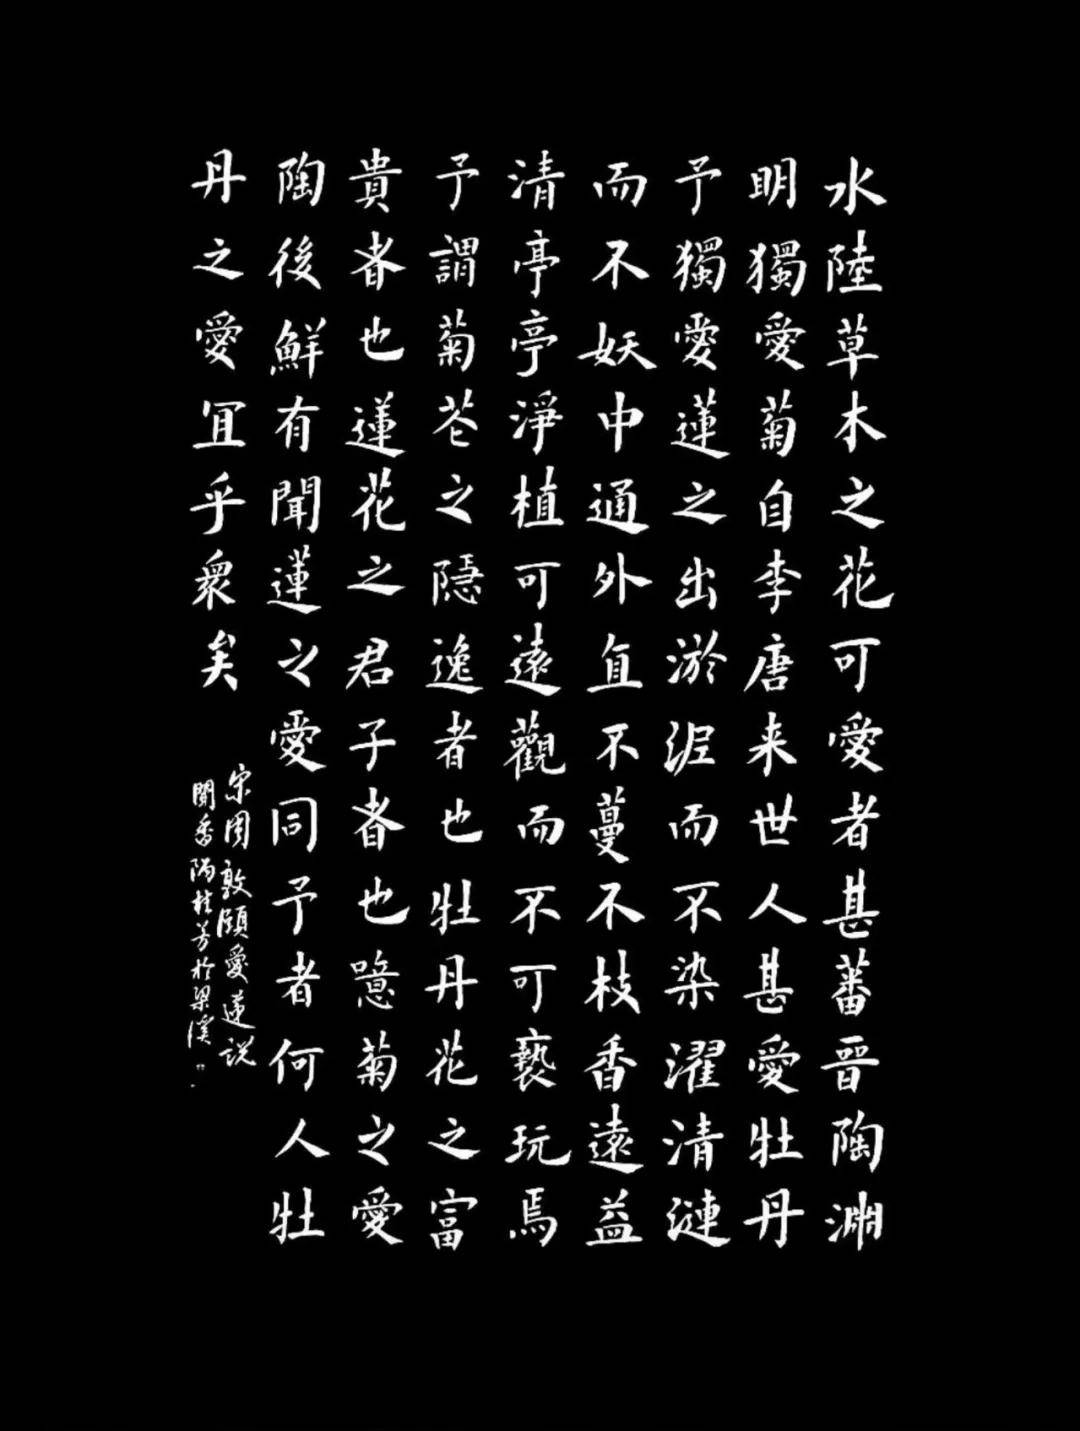 水陸草木之花可愛者甚蕃晉陶淵
明獨愛菊自李唐来世人甚愛牡丹
予獨愛蓮之出淤泥而不染濯清漣
而不妖中通外直不蔓不枝香遠益
清亭亭淨植可遠觀而不可褻玩焉
予謂菊花之隱逸者也牡丹花之富
貴者也蓮花之君子者也噫菊之愛
陶後鮮有聞蓮之愛同予者何人牡
丹之愛宜乎衆矣
宋周敦頤愛蓮説
聞香陋桂芳於梁溪